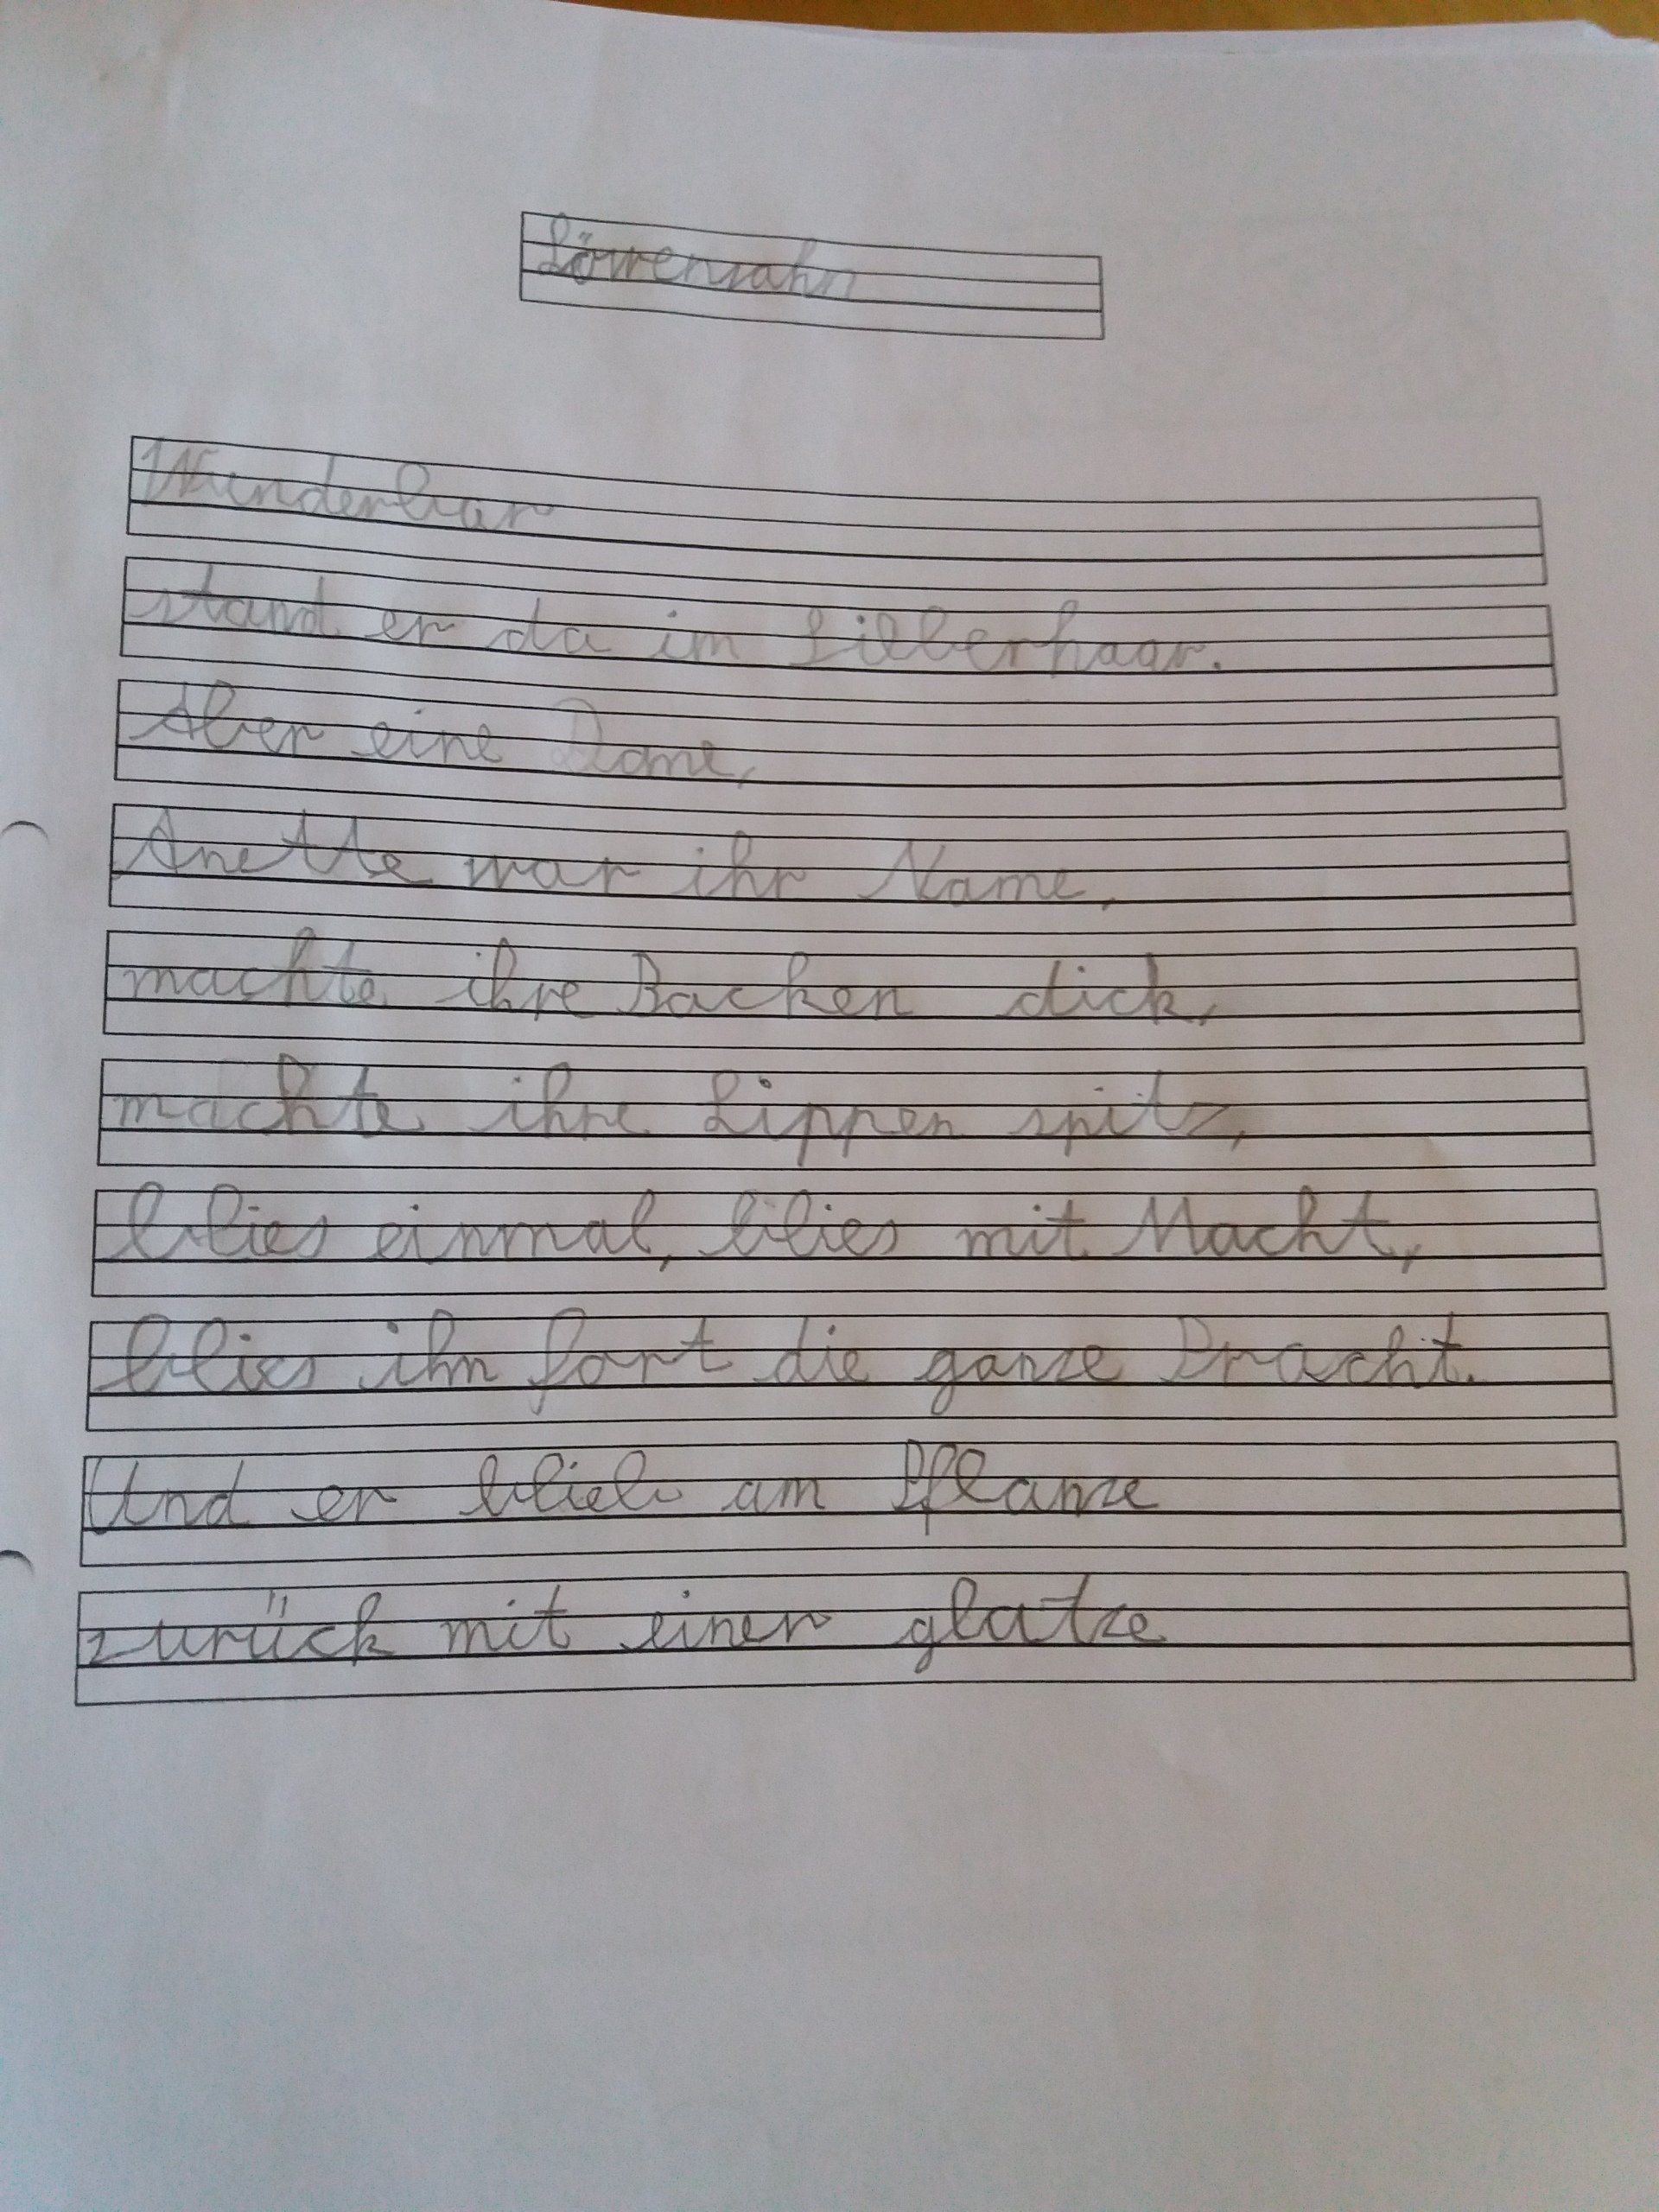 Löwenzahn
Wunderbar
stand er da im Silberhaar.
Aber eine Dame,
Anette war ihr Name,
machte ihre Backen dick,
machte ihre Lippen spitz,
blies einmal, blies mit Macht,
blies ihm fort die ganze Pracht.
Und er blieb am Pflanze
zurück mit einer glatze